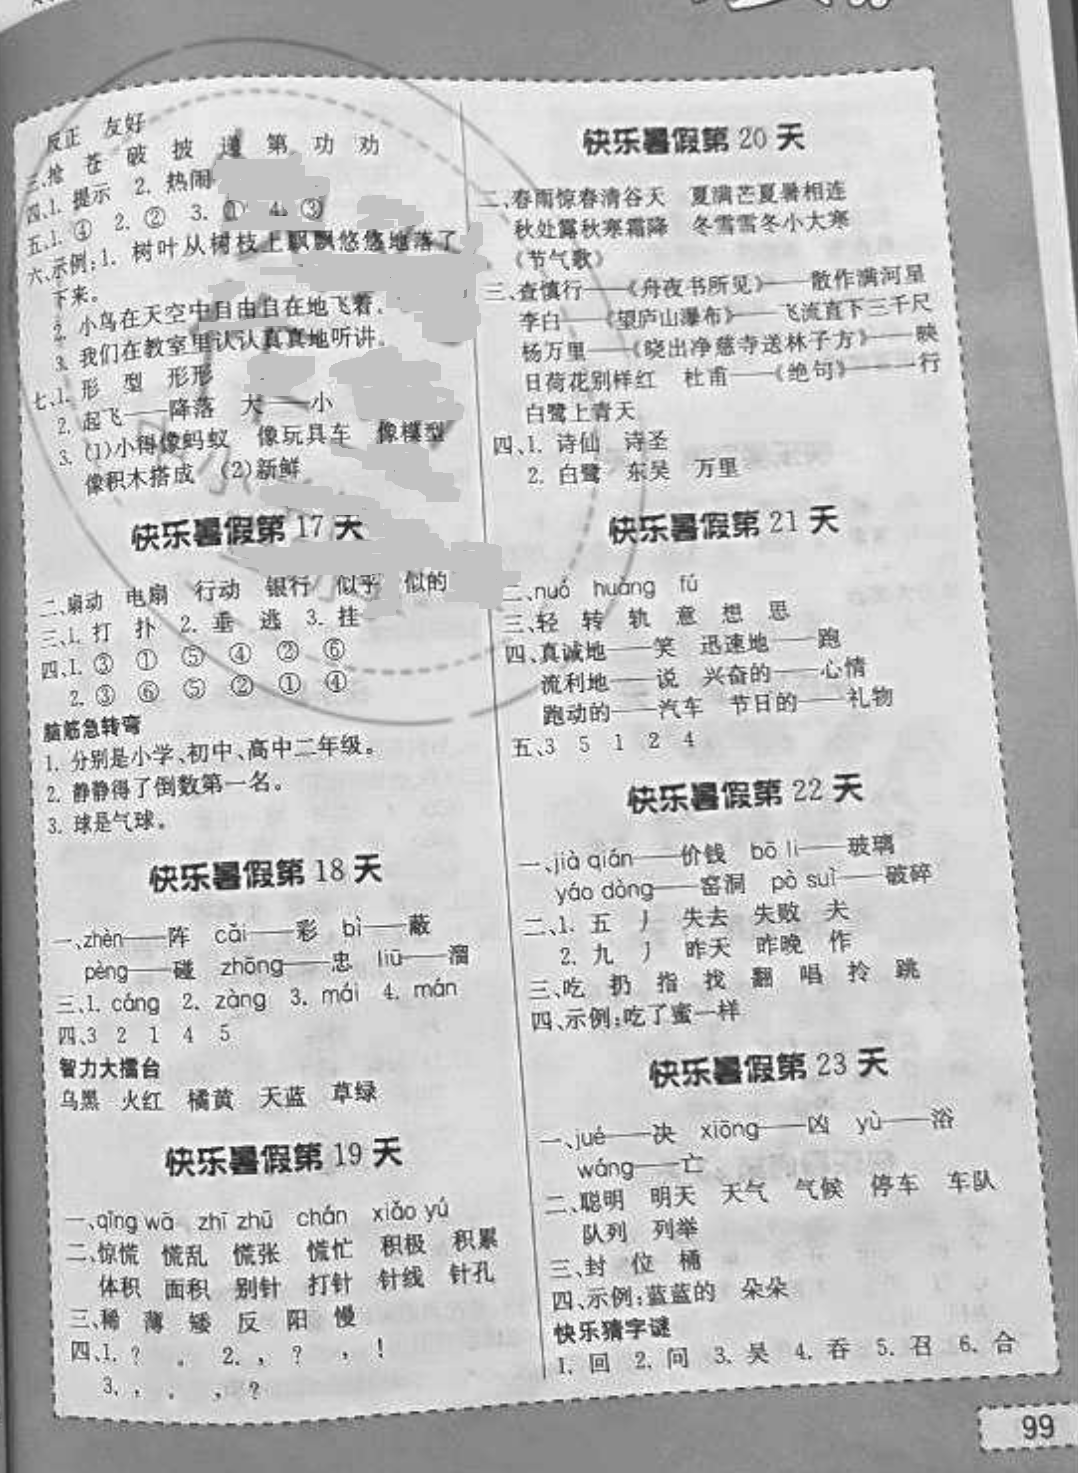 反正 友好
三、抢 苍 破 披 递 第 功 劝
四、1. 提示 2. 热闹
五、1. ④ 2. ② 3. ① 4. ③
六、示例:1. 树叶从树枝上飘飘悠悠地落了
下来。
2. 小鸟在天空中自由自在地飞着。
3. 我们在教室里认认真真地听讲。
七、1. 形 型 形形
2. 起飞——降落 大——小
3. (1)小得像蚂蚁 像玩具车 像模型
像积木搭成 (2)新鲜
快乐暑假第 17 天
二、扇动 电扇 行动 银行 似乎 似的
三、1. 打 扑 2. 垂 逃 3. 挂
四、1. ③ ① ⑤ ④ ② ⑥
2. ③ ⑥ ⑤ ② ① ④
脑筋急转弯
1. 分别是小学、初中、高中二年级。
2. 静静得了倒数第一名。
3. 球是气球。
快乐暑假第 18 天
一、zhèn——阵 cǎi——彩 bì——蔽
pèng——碰 zhōng——忠 liū——溜
三、1. cáng 2. zàng 3. mái 4. mán
四、3 2 1 4 5
智力大擂台
乌黑 火红 橘黄 天蓝 草绿
快乐暑假第 19 天
一、qīng wā zhī zhū chán xiǎo yú
二、惊慌 慌乱 慌张 慌忙 积极 积累
体积 面积 别针 打针 针线 针孔
三、稀 薄 矮 反 阳 慢
四、1. ? 。 2. , ? , !
3. , 。 , ?
快乐暑假第 20 天
二、春雨惊春清谷天 夏满芒夏暑相连
秋处露秋寒霜降 冬雪雪冬小大寒
《节气歌》
三、查慎行——《舟夜书所见》——散作满河星
李白——《望庐山瀑布》——飞流直下三千尺
杨万里——《晓出净慈寺送林子方》——映
日荷花别样红 杜甫——《绝句》——一行
白鹭上青天
四、1. 诗仙 诗圣
2. 白鹭 东吴 万里
快乐暑假第 21 天
二、nuó huàng fú
三、轻 转 轨 意 想 思
四、真诚地——笑 迅速地——跑
流利地——说 兴奋的——心情
跑动的——汽车 节日的——礼物
五、3 5 1 2 4
快乐暑假第 22 天
一、jià qián——价钱 bō li——玻璃
yáo dòng——窑洞 pò suì——破碎
二、1. 五 丿 失去 失败 夫
2. 九 丿 昨天 昨晚 作
三、吃 扔 指 找 翻 唱 拎 跳
四、示例:吃了蜜一样
快乐暑假第 23 天
一、jué——决 xiōng——凶 yù——浴
wáng——亡
二、聪明 明天 天气 气候 停车 车队
队列 列举
三、封 位 桶
四、示例:蓝蓝的 朵朵
快乐猜字谜
1. 回 2. 问 3. 吴 4. 吞 5. 召 6. 合
99